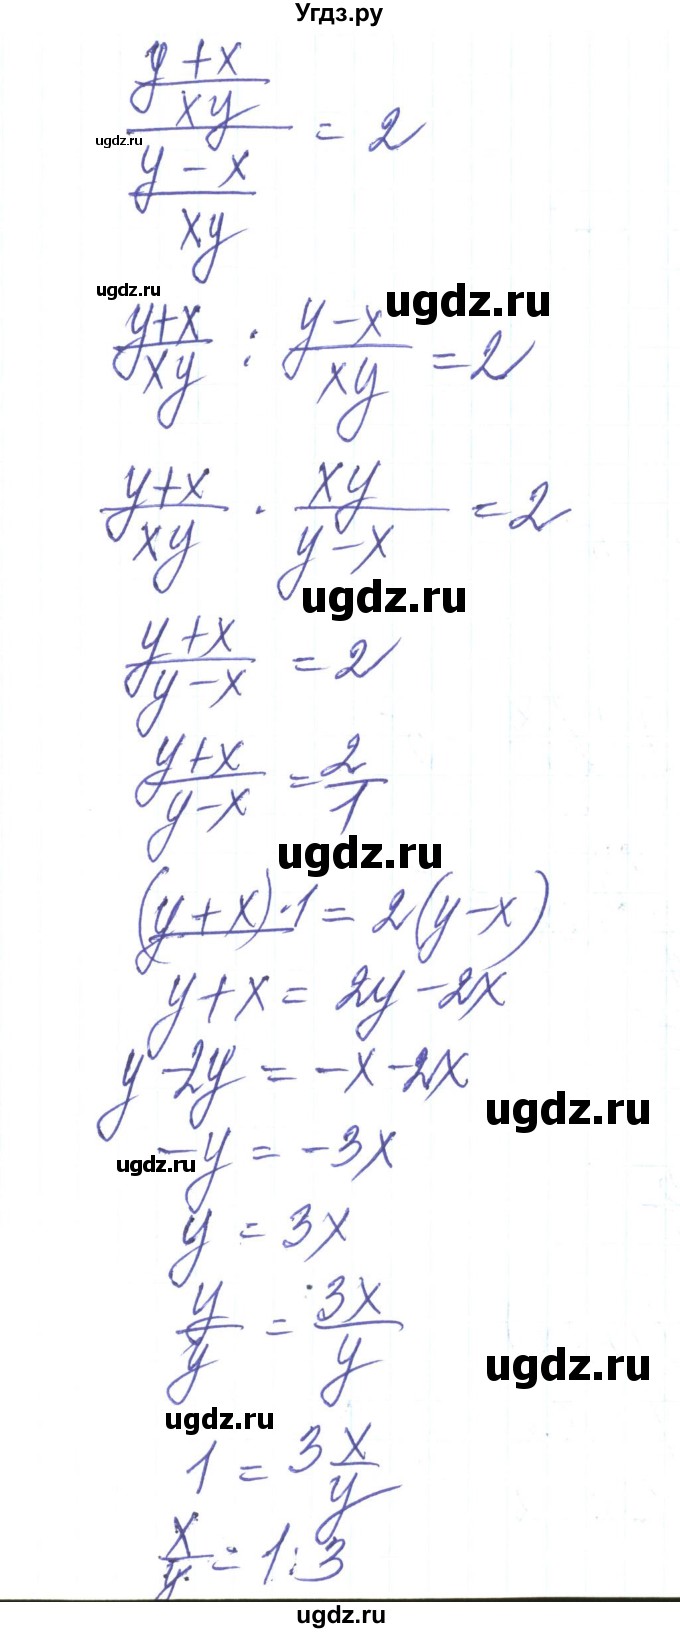 Угдз.ру
y+x
xy
ugdz.ru
= 2
y - x
xy
ugdz.ru
ugdz.ru
y+x/xy : y-x/xy = 2
y+x/xy · xy/y-x = 2
ugdz.ru
y+x/y-x = 2
y+x/y-x = 2/1
ugdz.ru
(y+x)·1 = 2(y-x)
y+x = 2y-2x
y-2y = -x-2x
ugdz.ru
ugdz.ru
-y = -3x
y = 3x
y/y = 3x/y
ugdz.ru
ugdz.ru
1 = 3 x/y
x/y = 1:3
ugdz.ru